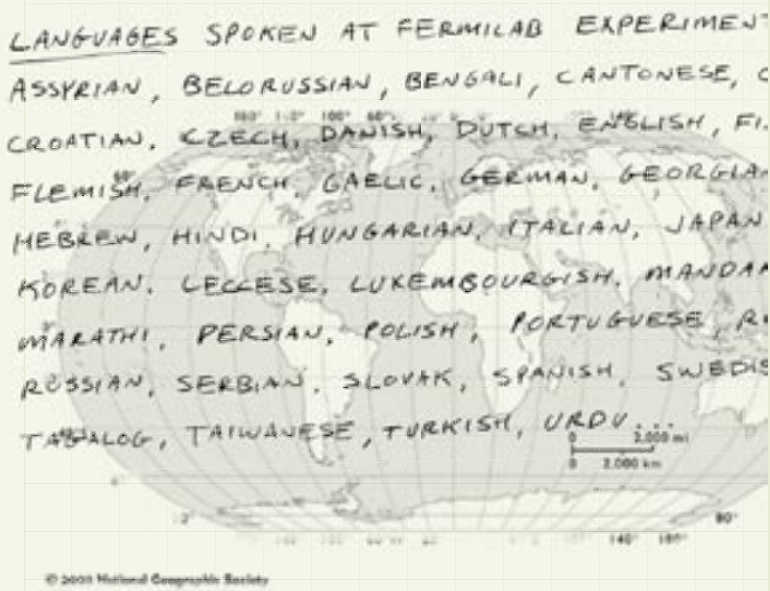 LANGUAGES SPOKEN AT FERMILAB EXPERIMENT
ASSYRIAN, BELORUSSIAN, BENGALI, CANTONESE, C
CROATIAN, CZECH, DANISH, DUTCH, ENGLISH, FI
FLEMISH, FRENCH, GAELIC, GERMAN, GEORGIA
HEBREW, HINDI, HUNGARIAN, ITALIAN, JAPAN
KOREAN, LECCESE, LUXEMBOURGISH, MANDA
MARATHI, PERSIAN, POLISH, PORTUGUESE, R
RUSSIAN, SERBIAN, SLOVAK, SPANISH, SWEDIS
TAGALOG, TAIWANESE, TURKISH, URDU...
0 2,000 mi
0 2,000 km
80°
140° 180°
© 2003 National Geographic Society